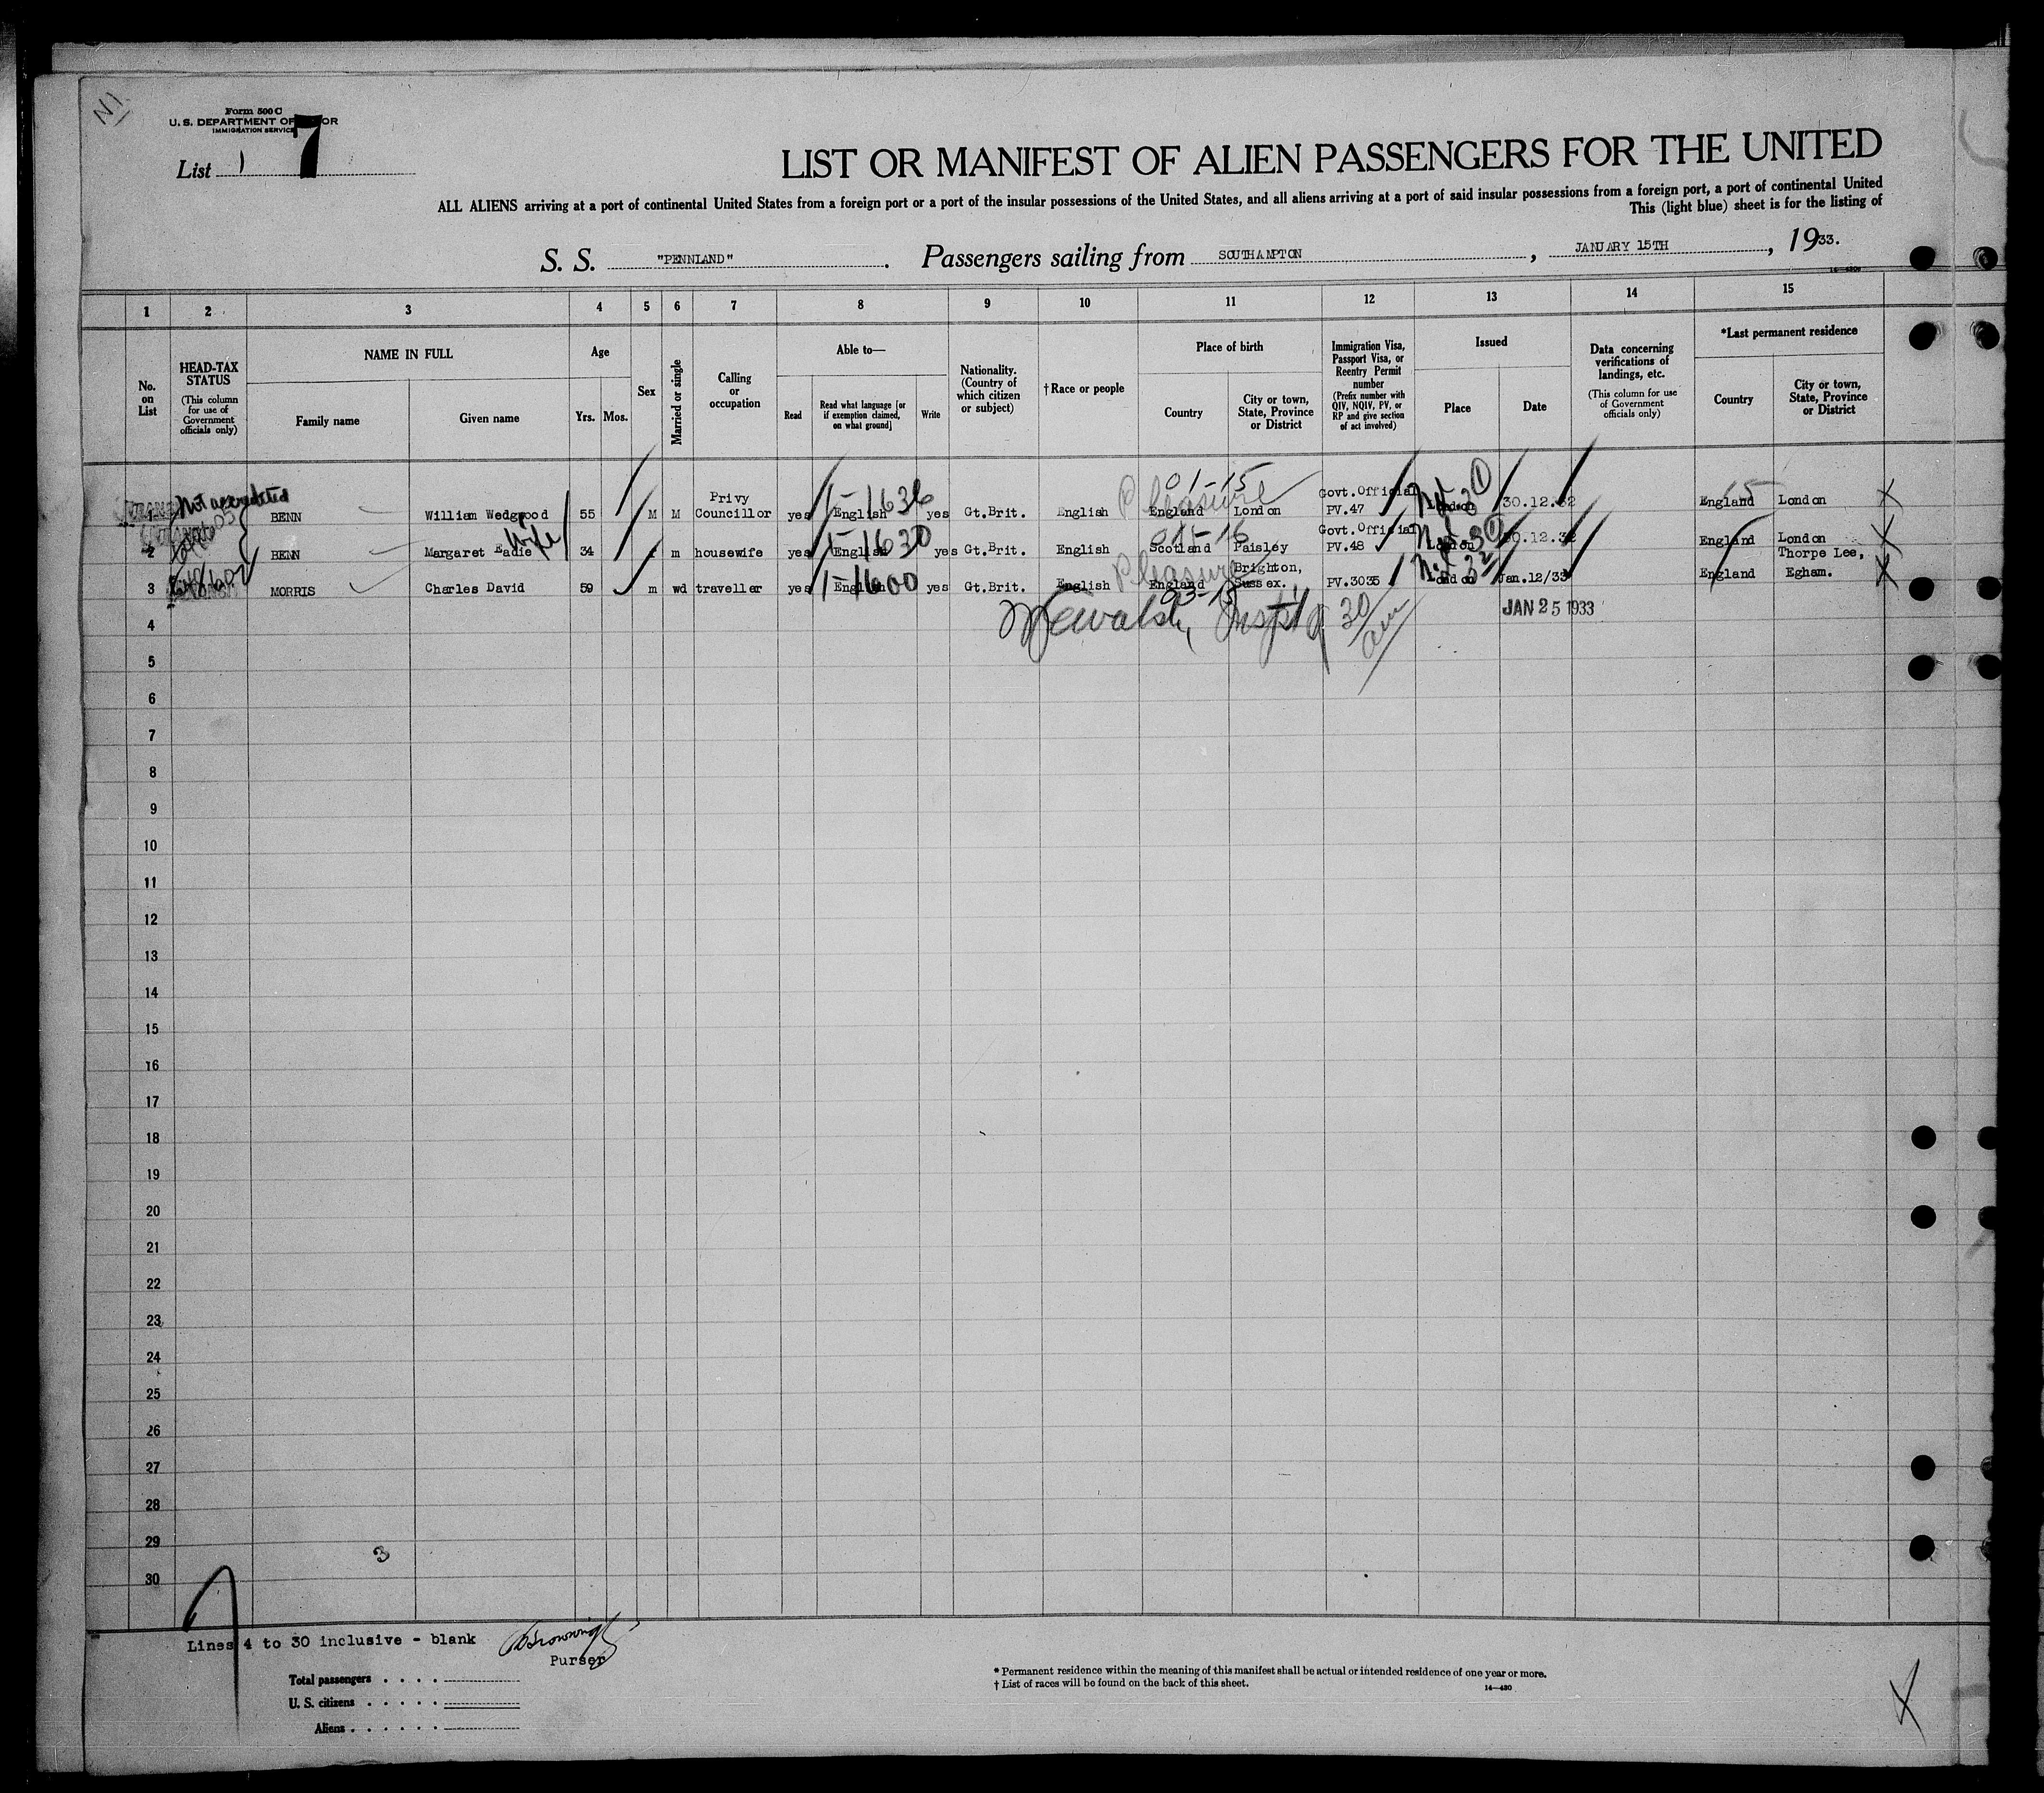 Form 500 C
U. S. DEPARTMENT OF
IMMIGRATION SERVICE
List 1 7
LIST OR MANIFEST OF ALIEN PASSENGERS FOR THE UNITED
ALL ALIENS arriving at a port of continental United States from a foreign port or a port of the insular possessions of the United States, and all aliens arriving at a port of said insular possessions from a foreign port, a port of continental United
This (light blue) sheet is for the listing of
S. S. "PENNLAND". Passengers sailing from SOUTHAMPTON, JANUARY 15TH, 1933.
1 2 3 4 5 6 7 8 9 10 11 12 13 14 15
No. on List
HEAD-TAX STATUS (This column for use of Government officials only)
NAME IN FULL
Family name
Given name
Age
Yrs. Mos.
Sex
Married or single
Calling or occupation
Able to—
Read
Read what language [or if exemption claimed, on what ground]
Write
Nationality. (Country of which citizen or subject)
† Race or people
Place of birth
Country
City or town, State, Province or District
Immigration Visa, Passport Visa, or Reentry Permit number (Prefix number with QIV, NQIV, PV, or RP and give section of act involved)
Issued
Place
Date
Data concerning verifications of landings, etc. (This column for use of Government officials only)
*Last permanent residence
Country
City or town, State, Province or District
Not accredited
1 BENN William Wedgwood 55 M M Privy Councillor yes English 1-1636 yes Gt.Brit. English Pleasure 01-15 England London Govt.Official PV.47 London 30.12.32 England London
Wife
2 BENN Margaret Eadie 34 f m housewife yes English 1-1630 yes Gt.Brit. English Scotland Paisley Govt.Official PV.48 London 30.12.32 England London
3 MORRIS Charles David 59 m wd traveller yes English 1-1600 yes Gt.Brit. English Pleasure England Brighton, Sussex. PV.3035 London Jan.12/33 England Thorpe Lee, Egham.
JAN 25 1933
4
5
6
7
8
9
10
11
12
13
14
15
16
17
18
19
20
21
22
23
24
25
26
27
28
29
3
30
Lines 4 to 30 inclusive - blank
Purser
Total passengers . . . .
U. S. citizens . . . . .
Aliens . . . . . .
* Permanent residence within the meaning of this manifest shall be actual or intended residence of one year or more.
† List of races will be found on the back of this sheet.
14—430